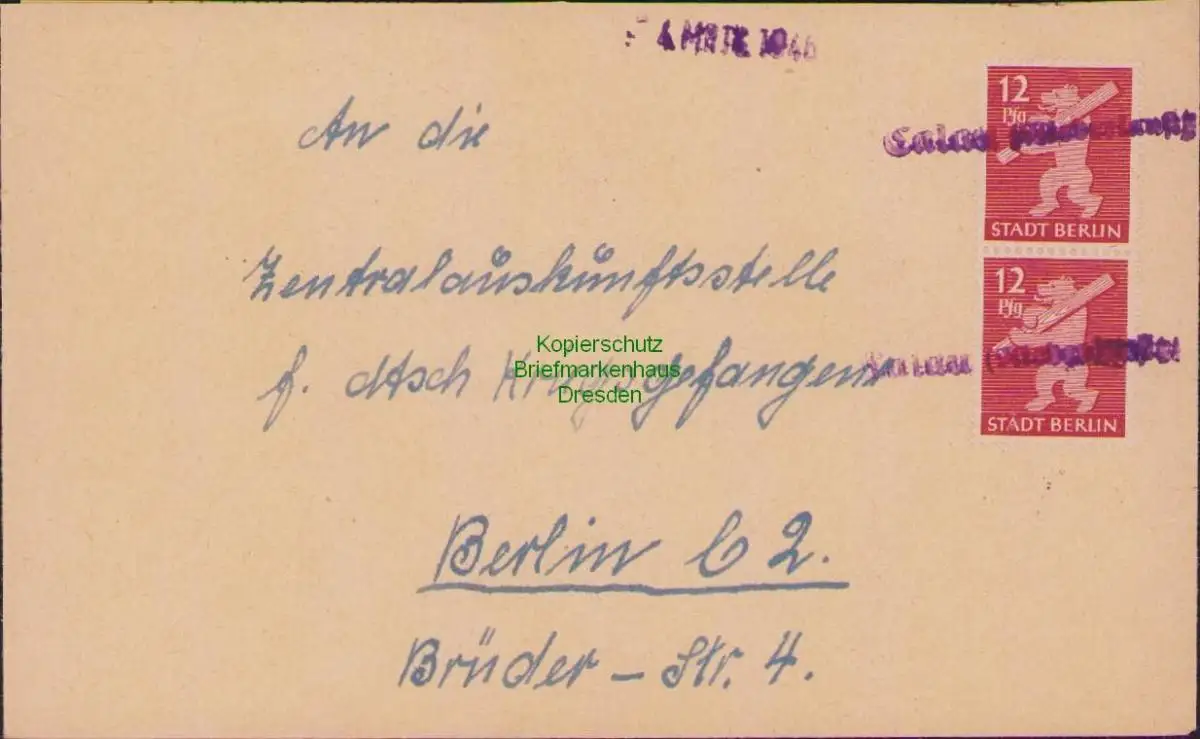 4. MRZ. 1946
An die
Zentralauskunftsstelle
f. dtsch Kriegsgefangene
Berlin C 2.
Brüder - Str. 4.
12
Pfg
STADT BERLIN
Calau
12
Pfg
STADT BERLIN
Calau
Kopierschutz
Briefmarkenhaus
Dresden